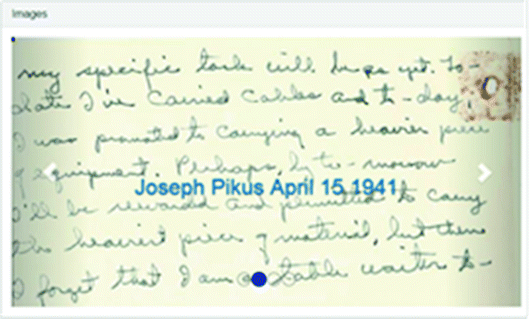 Images
my specific task will be as yet. To-
date I've carried cables and to-day
I was promoted to carrying a heavier piece
of equipment. Perhaps, by to-morrow
Joseph Pikus April 15 1941
I'll be rewarded and permitted to carry
the heaviest piece of material, but then
I forget that I am a table waiter to-